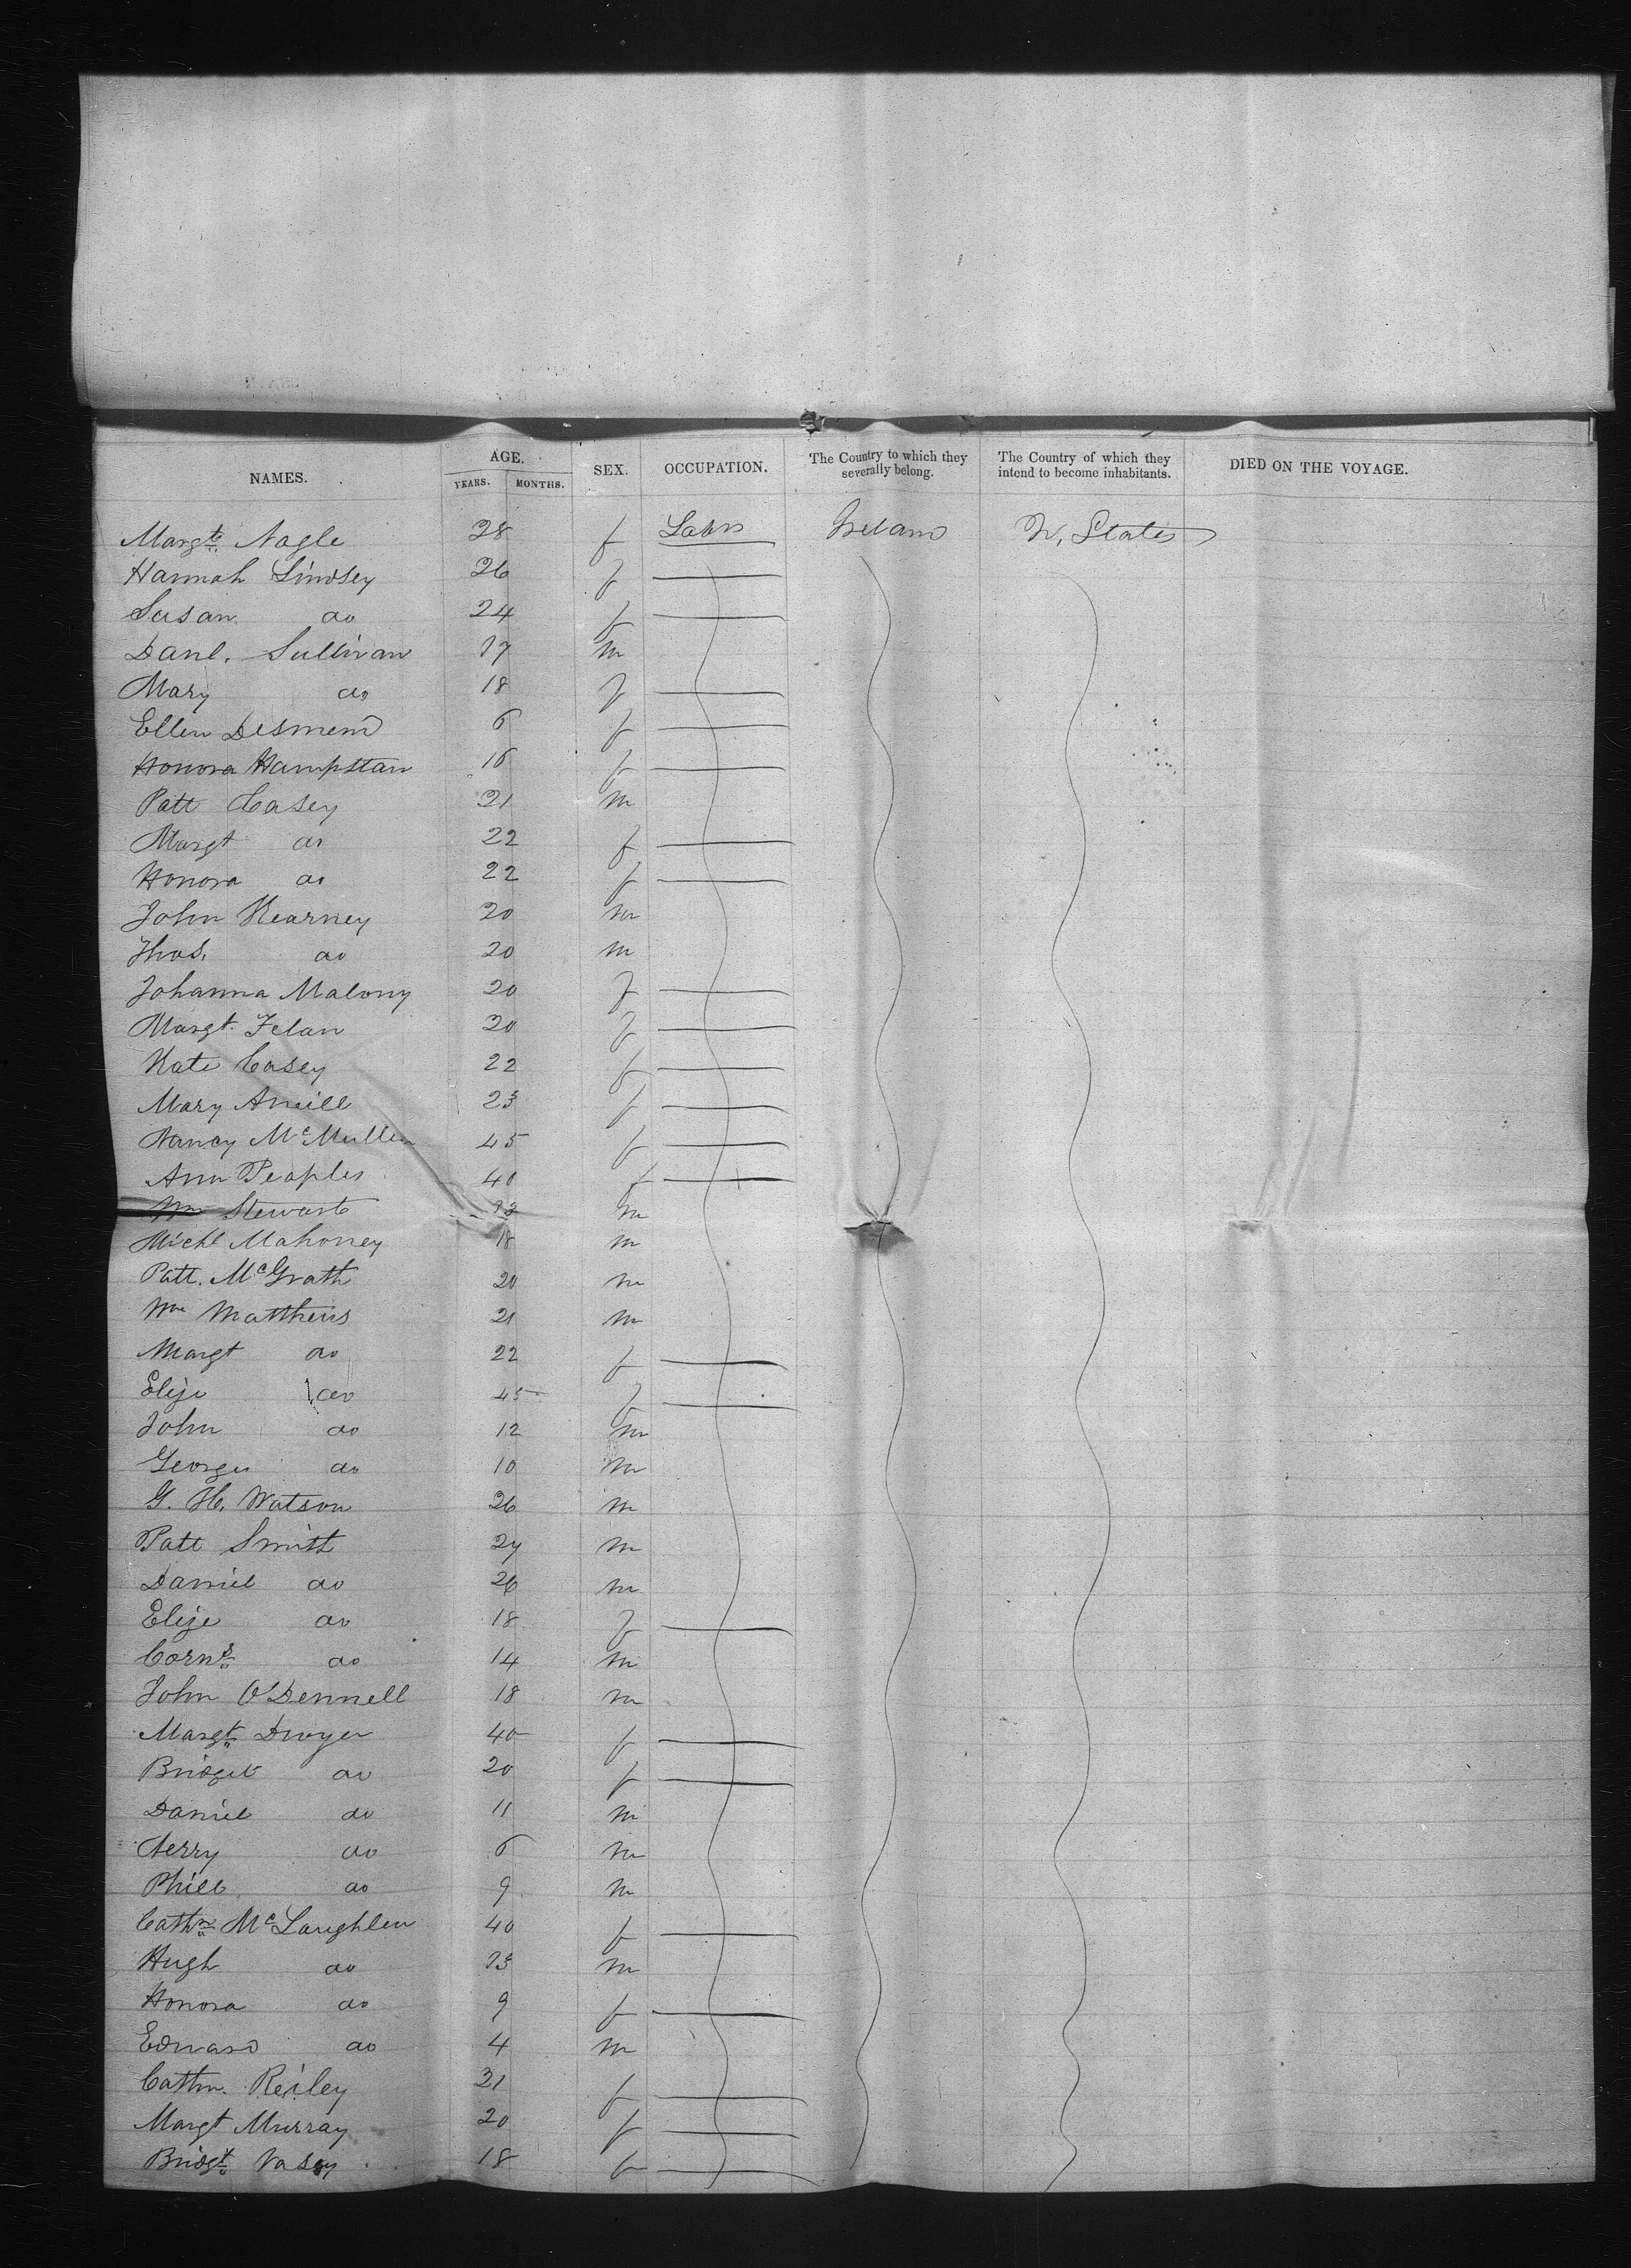 NAMES. AGE. YEARS. MONTHS. SEX. OCCUPATION. The Country to which they severally belong. The Country of which they intend to become inhabitants. DIED ON THE VOYAGE.
Margt. Nagle 28 f Labrs Ireland U, States
Hannah Lindsey 26 f
Susan do 24 f
Danl. Sullivan 17 m
Mary do 18 f
Ellen Desmend 6 f
Honora Hampstan 16 f
Patt Casey 21 m
Margt do 22 f
Honora do 22 f
John Kearney 20 m
Thos. do 20 m
Johanna Malony 20 f
Margt. Felan 20 f
Kate Casey 22 f
Mary Aneill 23 f
Nancy McMullen 45 f
Ann Peaples 40 f
Wm Stewart 13 m
Michl Mahoney 18 m
Patt. McGrath 20 m
Wm Matthews 21 m
Margt do 22 f
Elize do 45 f
John do 12 m
George do 10 m
G. H. Watson 26 m
Patt Smith 27 m
Daniel do 26 m
Elize do 18 f
Corns do 14 m
John O'Dennell 18 m
Margt Dwyer 40 f
Bridget do 20 f
Daniel do 11 m
Jerry do 6 m
Phill do 9 m
Cathn McLaughlen 40 f
Hugh do 13 m
Honora do 9 f
Edward do 4 m
Cathn. Reiley 21 f
Margt Murray 20 f
Bridgt Vasey 18 f